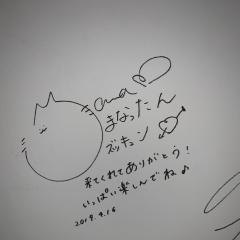 まなったん
ズッキュン
来てくれてありがとう！
いっぱい楽しんでね♪
2019.4.16